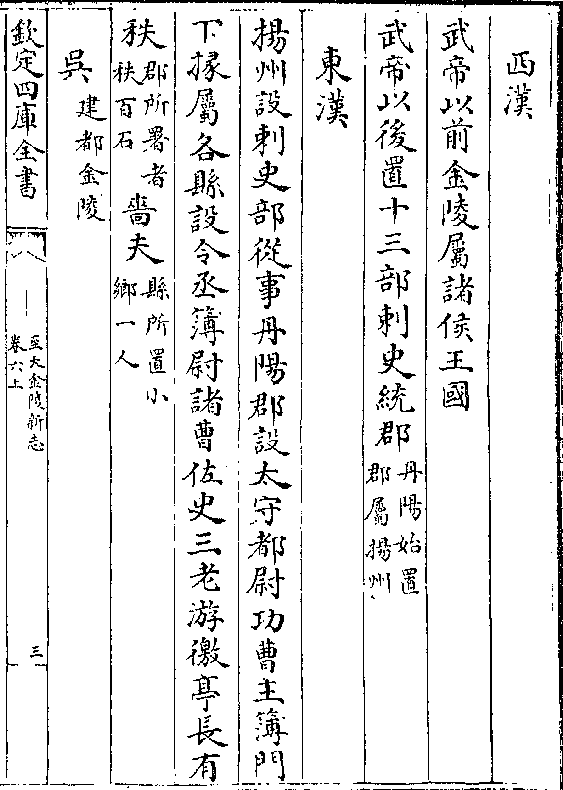 西漢
武帝以前金陵屬諸侯王國
武帝以後置十三部刺史統郡丹陽始置
郡屬揚州
東漢
揚州設刺史部從事丹陽郡設太守都尉功曹主簿門
下掾屬各縣設令丞簿尉諸曹佐史三老游徼亭長有
秩郡所署者
秩百石
嗇夫縣所置小
鄉一人
吳建都金陵
欽定四庫全書
至大金陵新志
卷六上
三